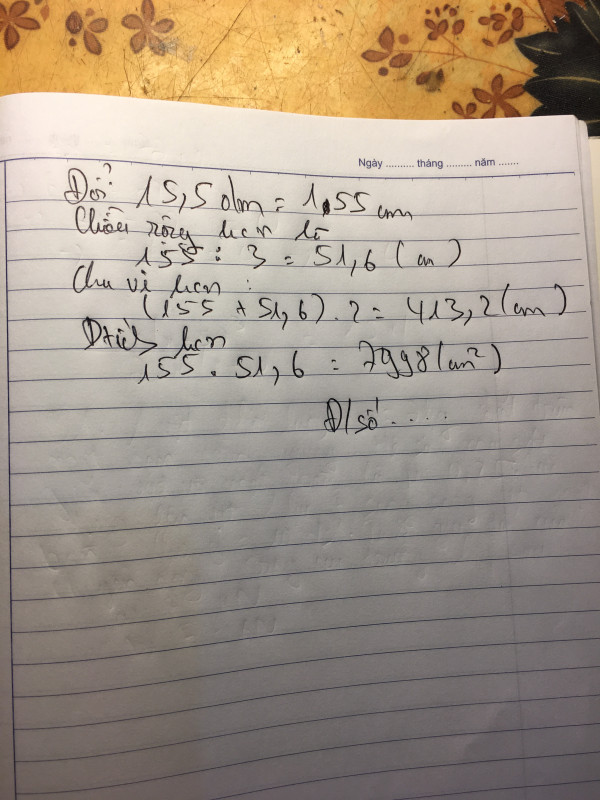 Ngày .......... tháng ......... năm .......
Đổi 15,5dm = 1,55 cm
Chiều rộng hcn là
155 : 3 = 51,6 (cm)
Chu vi hcn :
(155 + 51,6) . 2 = 413,2 (cm)
Dtích hcn
155 . 51,6 = 7998 (cm²)
Đ/số .....